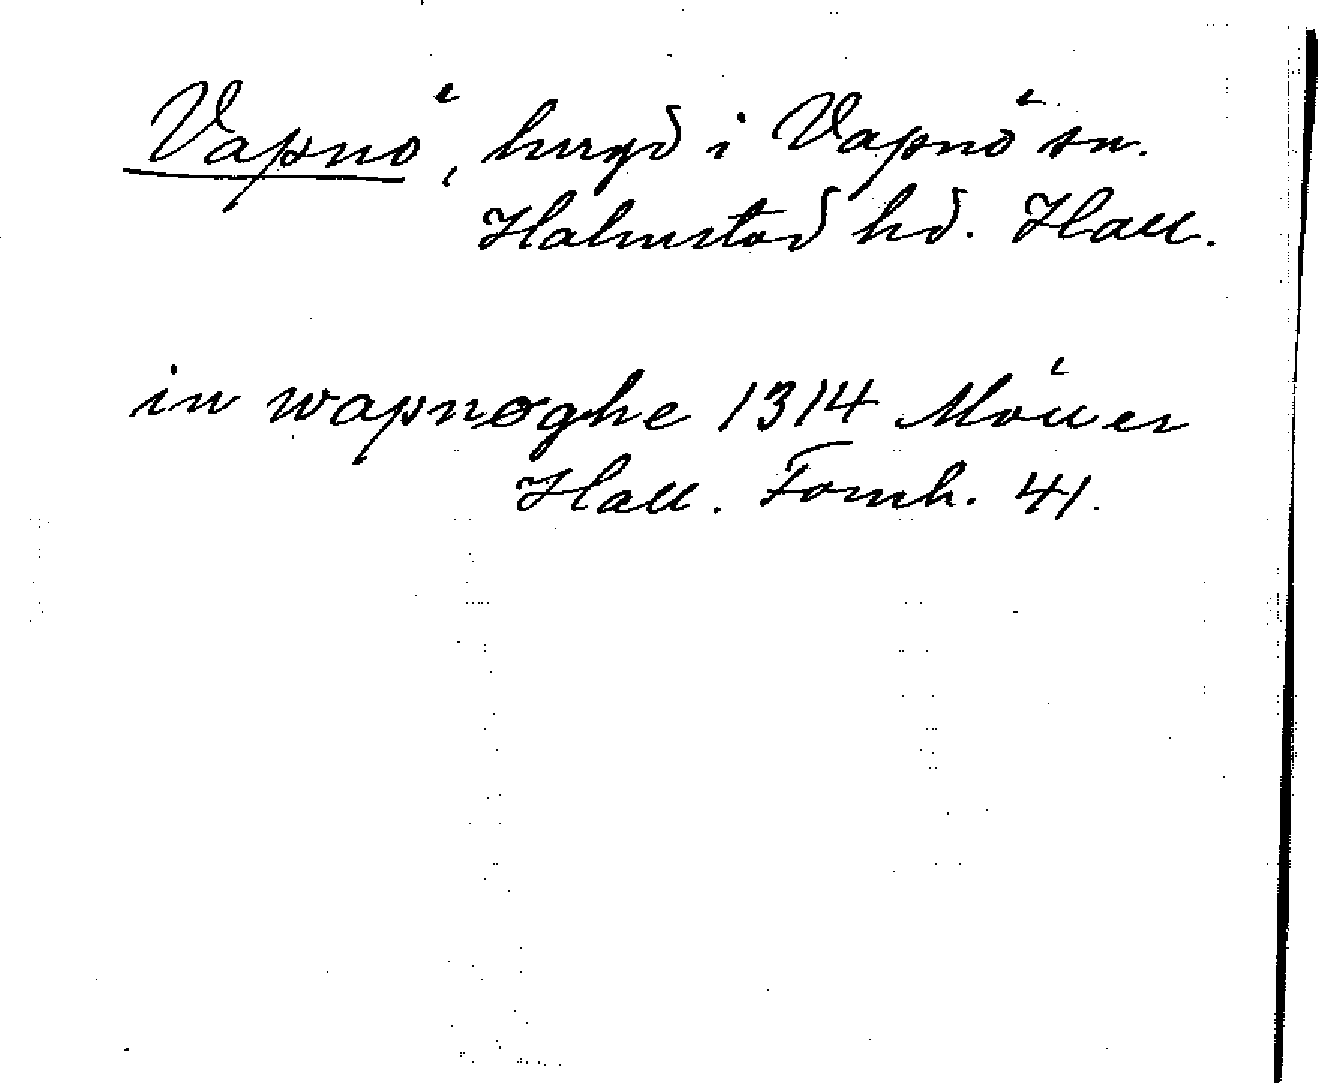 Vapnö, hrgd i Vapnö sn.
Halmstad hd. Hall.
in wapnøghe 1314 Möller
Hall. Fornh. 41.